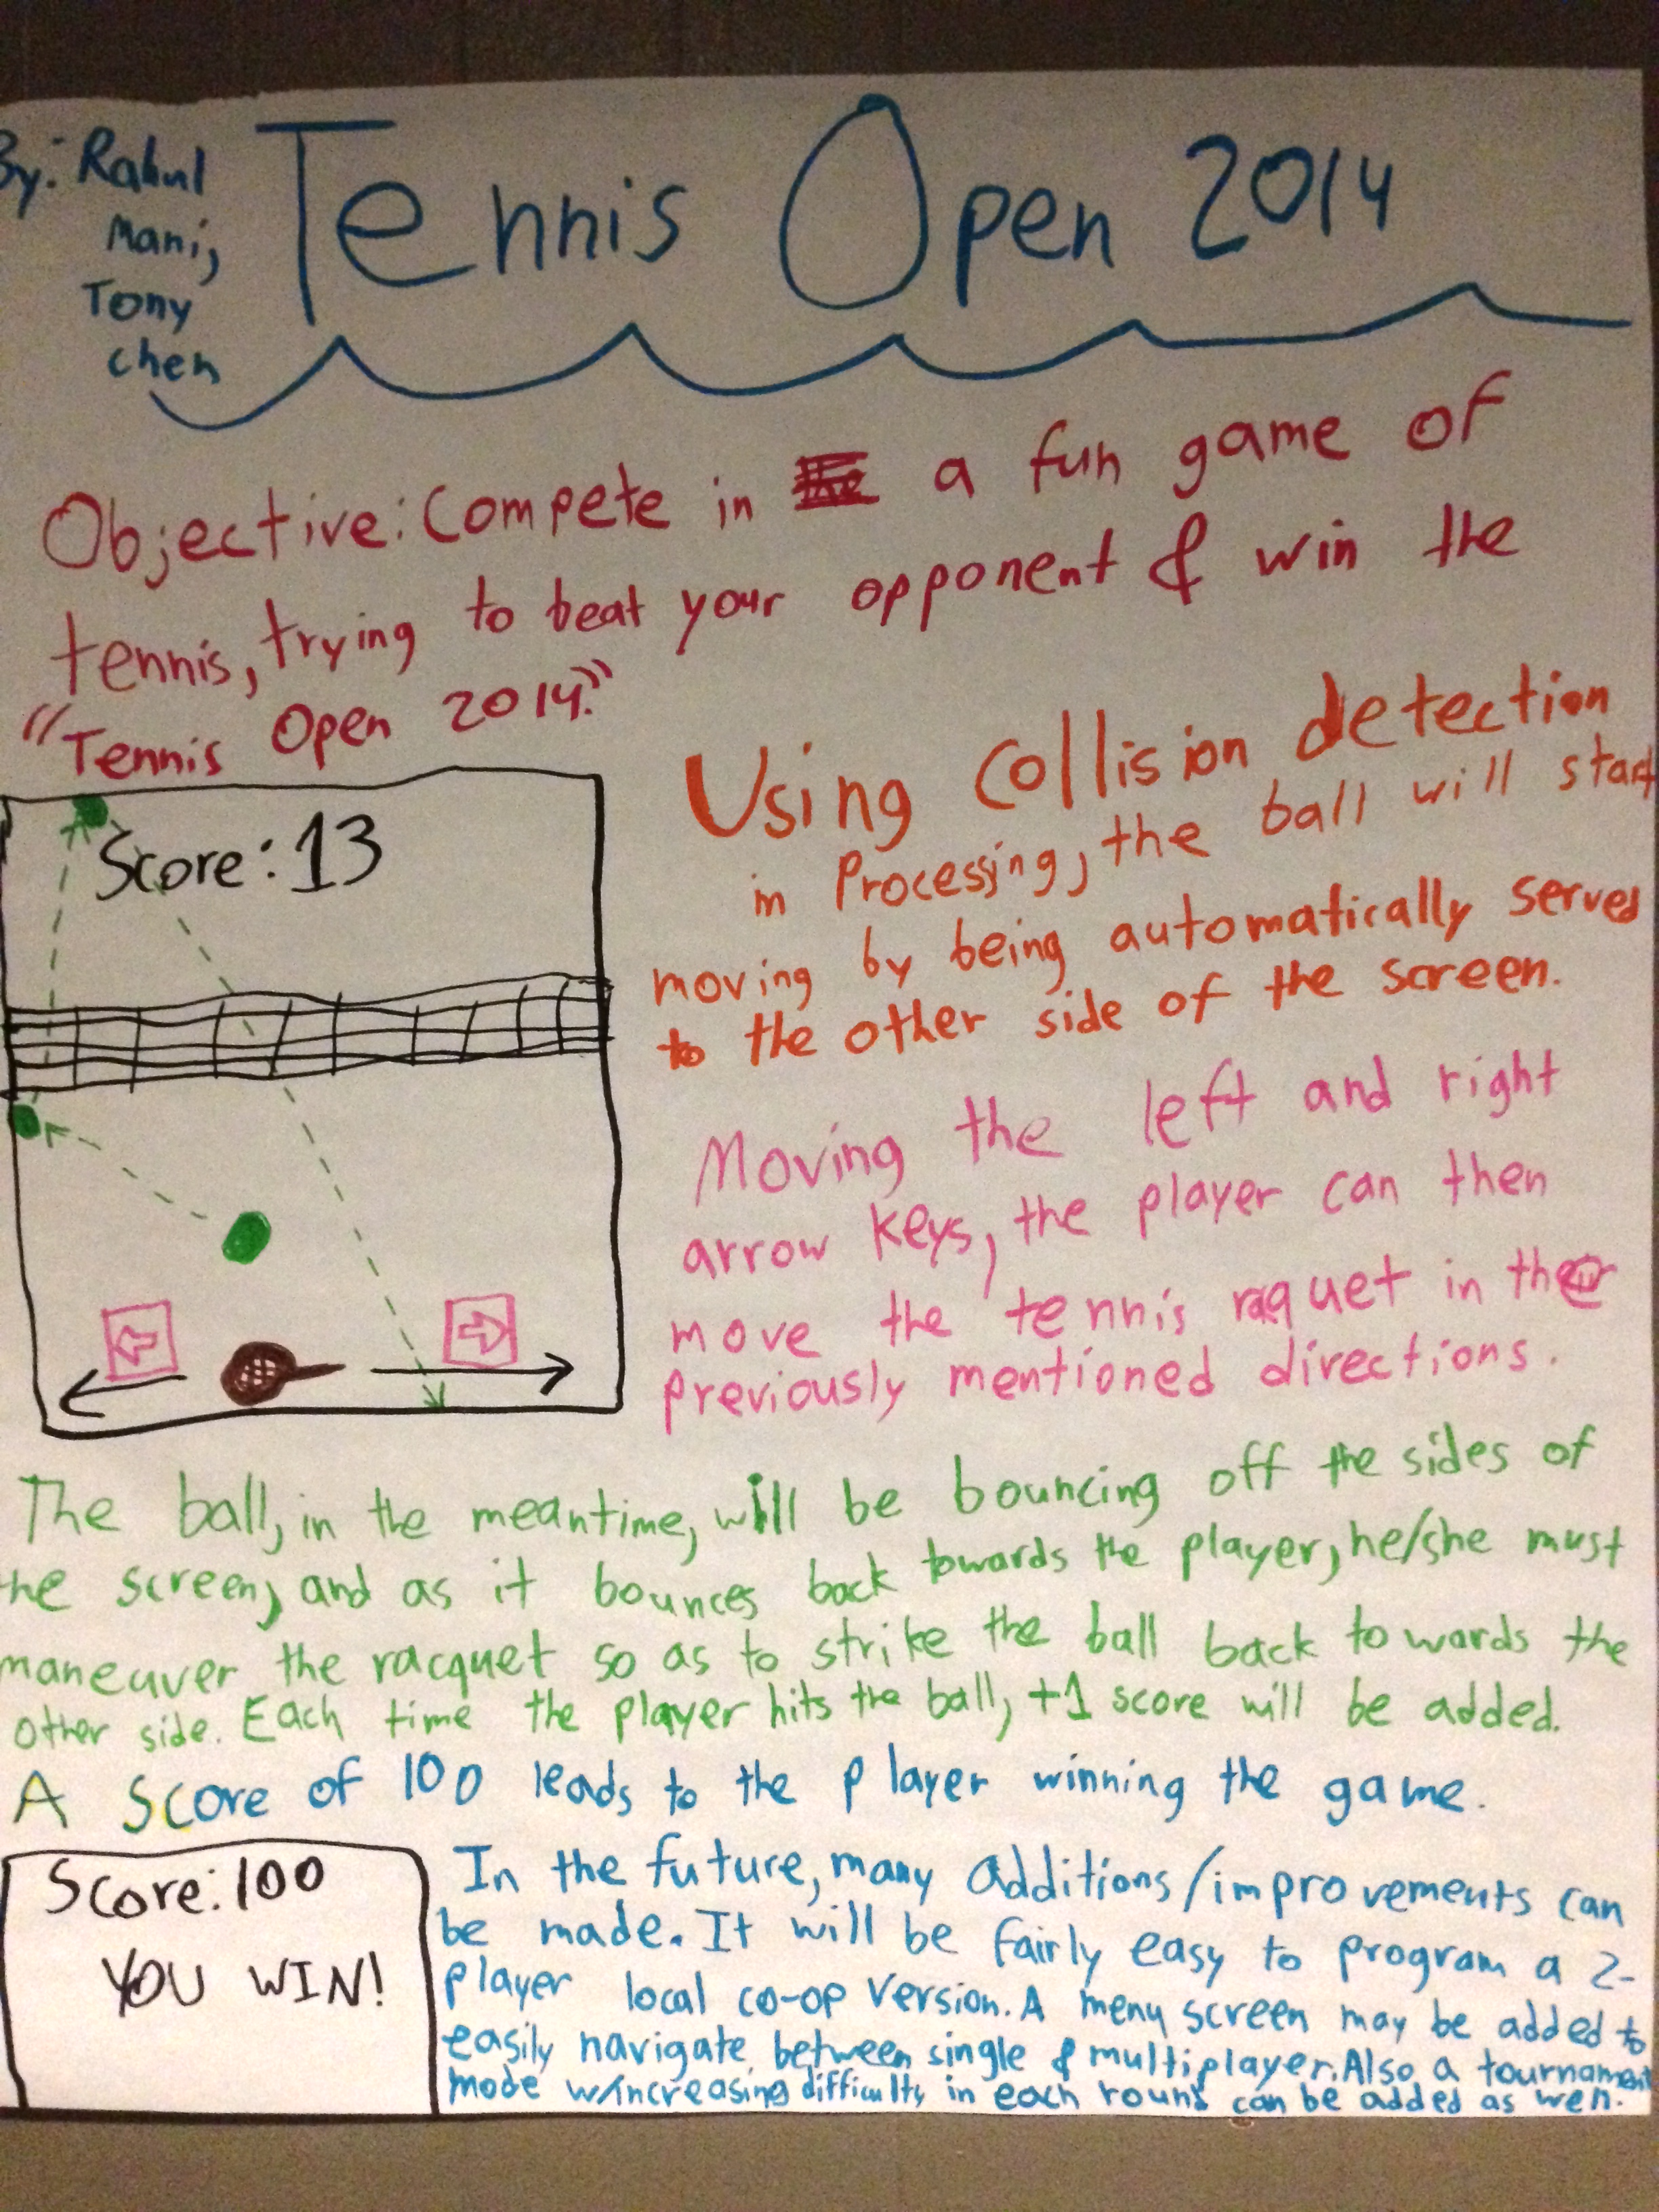 By: Rahul
Mani,
Tony
Chen
Tennis Open 2014
Objective: Compete in a fun game of
tennis, trying to beat your opponent & win the
"Tennis Open 2014."
Score: 13
Using collision detection
in Processing, the ball will start
moving by being automatically served
to the other side of the screen.
Moving the left and right
arrow keys, the player can then
move the tennis raquet in the
previously mentioned directions.
The ball, in the meantime, will be bouncing off the sides of
the screen, and as it bounces back towards the player, he/she must
maneuver the racquet so as to strike the ball back towards the
other side. Each time the player hits the ball, +1 score will be added.
A score of 100 leads to the player winning the game.
Score: 100
YOU WIN!
In the future, many additions/improvements can
be made. It will be fairly easy to program a 2-
player local co-op version. A menu screen may be added to
easily navigate between single & multiplayer. Also, a tournament
mode w/increasing difficulty in each round can be added as well.